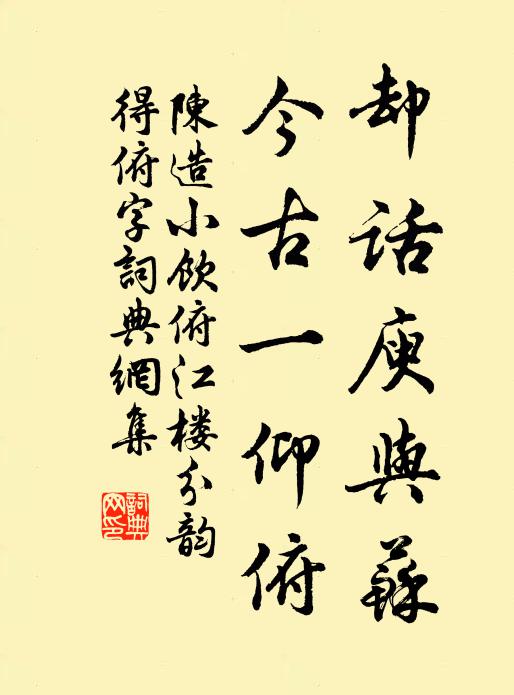 却話庾與蘇
今古一仰俯
陳造小飲俯江楼分韵
得俯字詞典網集
詞典网印